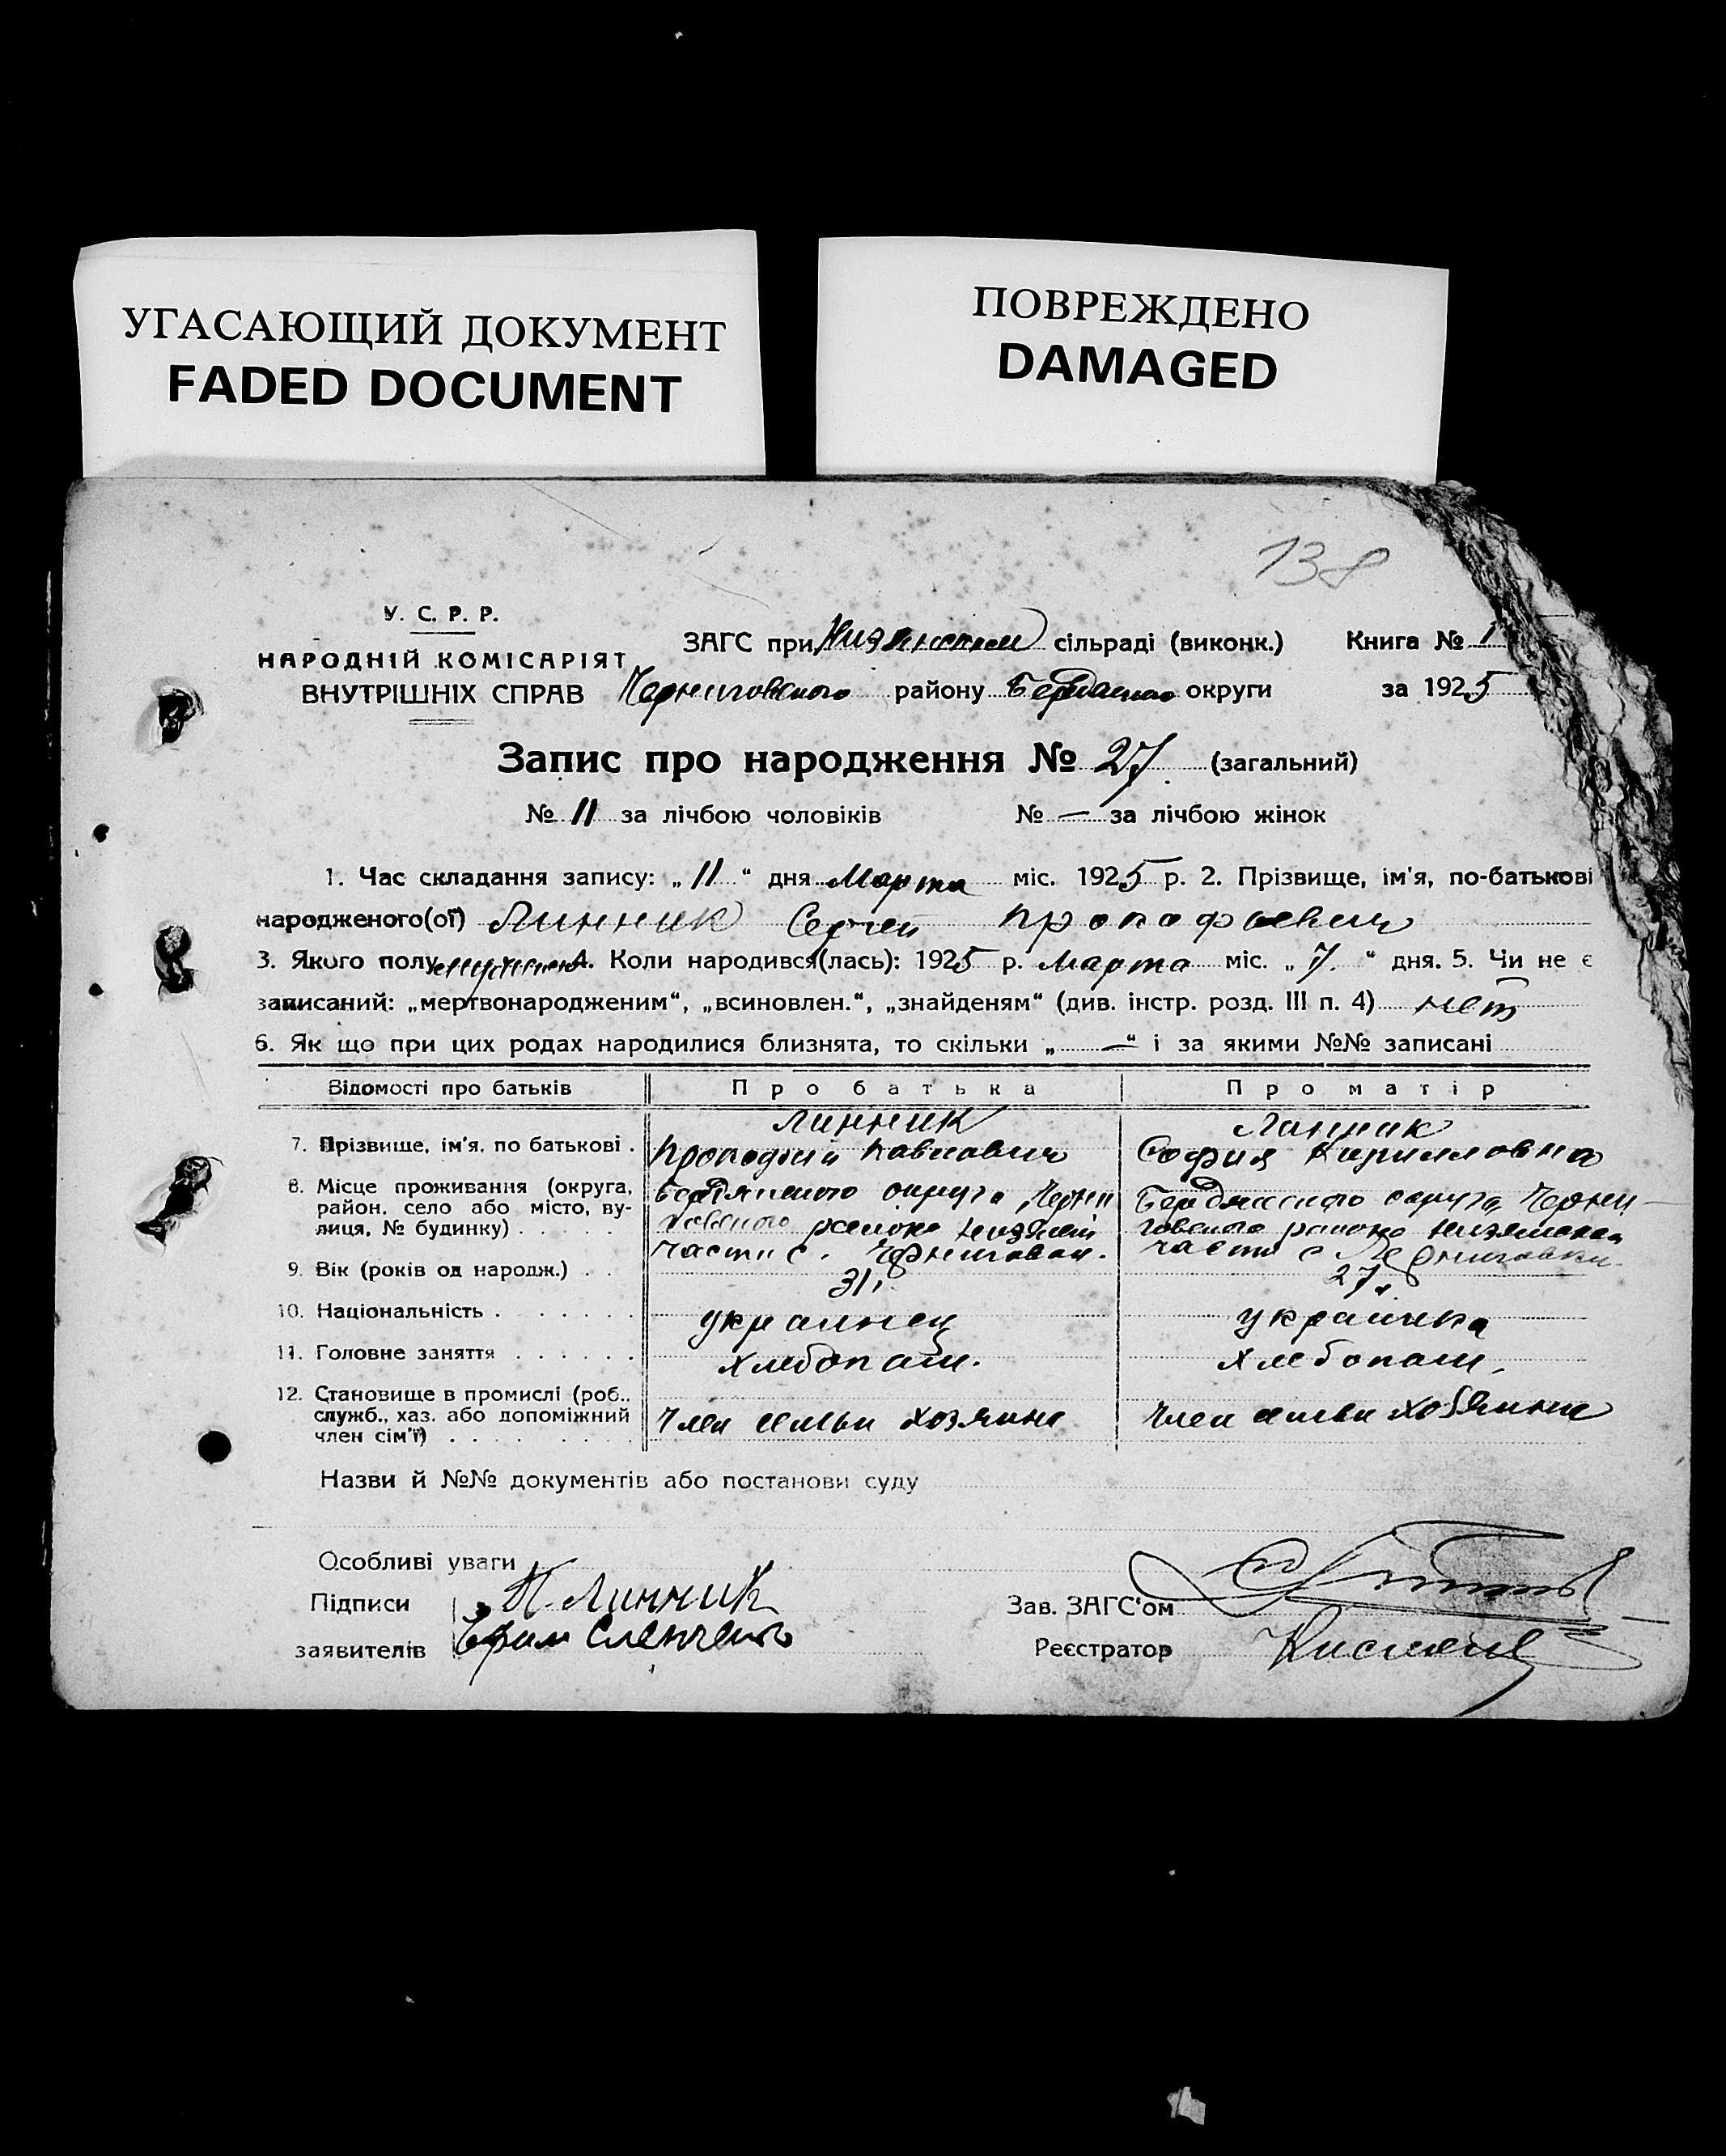 УГАСАЮЩИЙ ДОКУМЕНТ
FADED DOCUMENT
ПОВРЕЖДЕНО
DAMAGED
138
У. С. Р. Р.
НАРОДНІЙ КОМІСАРІЯТ
ВНУТРІШНІХ СПРАВ
ЗАГС при Низянском сільраді (виконк.) Книга № 1
Черниговского району Бердянского округи за 1925
Запис про народження № 27 (загальний)
№ 11 за лічбою чоловіків № — за лічбою жінок
1. Час складання запису: „ 11 “ дня Марта міс. 1925 р. 2. Прізвище, ім'я, по-батькові
народженого(ої) Линник Сергей Прокофьевич
3. Якого полу 4. Коли народився(лась): 1925 р. Марта міс. „ 7. “ дня. 5. Чи не є
записаний: „мертвонародженим“, „всиновлен.“, „знайденям“ (див. інстр. розд. III п. 4) нет
6. Як що при цих родах народилися близнята, то скільки „ — “ і за якими №№ записані
Відомості про батьків Про батька Про матір
Линник Линник
7. Прізвище, ім'я, по батькові . Прокофий Павлович София Кирилловна
8. Місце проживання (округа, район, село або місто, вулиця, № будинку) . . . . .
Бердянского округа Черни Бердянского округа Черни-
говского района Низян говского района Низянская
части с. Черниговки. части с Черниговки
9. Вік (років од народж.) . . 31. 27.
10. Національність . . . . . . украинец украинка
11. Головне заняття . . . . . . хлебопаш. хлебопаш.
12. Становище в промислі (роб., служб., хаз. або допоміжний член сім'ї) . . . . . . .
Член семьи хозяина член семьи хозяина
Назви й №№ документів або постанови суду
Особливі уваги
Підписи П. Линник
заявителів Ефим Слепченко
Зав. ЗАГС'ом
Реєстратор